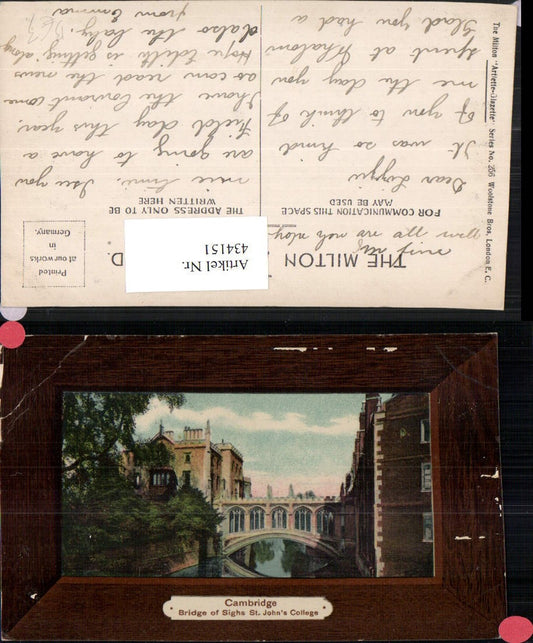 The Milton "Artlette-Glazette" Series No. 255 Woolstone Bros, London E. C.
THE MILTON
D.
FOR COMMUNICATION THIS SPACE
MAY BE USED
THE ADDRESS ONLY TO BE
WRITTEN HERE
Printed
at our works
in
Germany.
Artikel Nr.
434151
hope you are all well
Dear Lizzie
It was so kind
of you to think of
me the day you
spent at
Glad you had a
nice time. I see you
are going to have a
Field day this year.
I have the Courant come
so can read the news
Hope Edith is getting along
& also the baby.
from Emma
Cambridge
Bridge of Sighs St. John's College